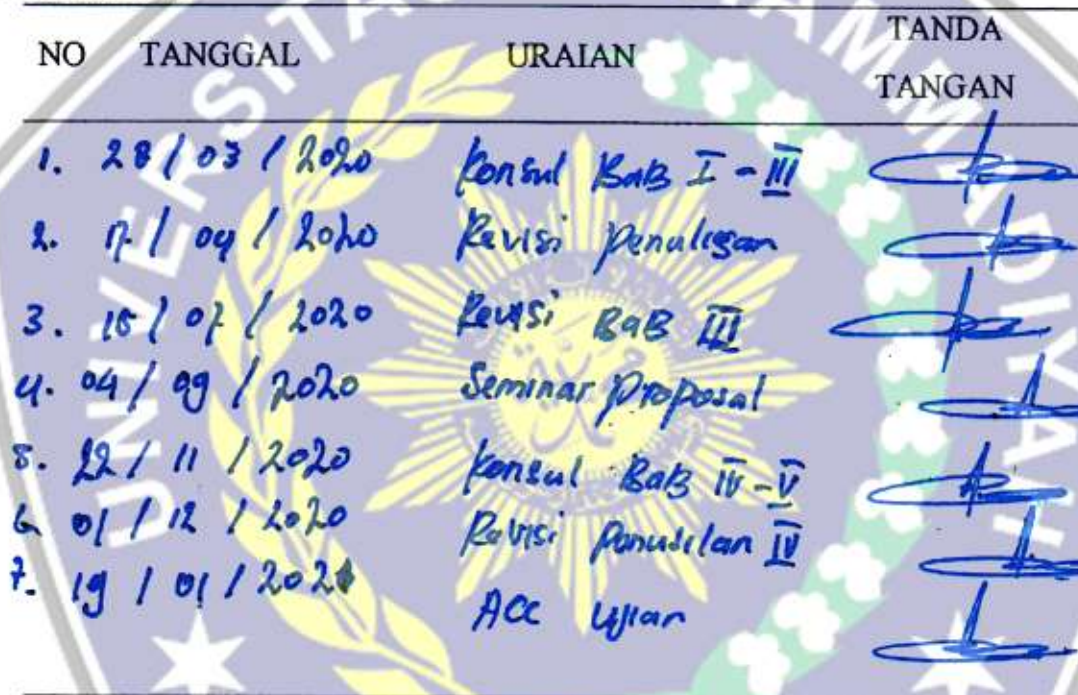 NO TANGGAL URAIAN TANDA TANGAN
1. 28 / 03 / 2020 Konsul BaB I - III
2. 17 / 04 / 2020 Revisi Penulisan
3. 15 / 07 / 2020 Revisi BaB III
4. 04 / 09 / 2020 Seminar Proposal
5. 22 / 11 / 2020 Konsul BaB IV - V
6 01 / 12 / 2020 Revisi Penulisan IV
7. 19 / 01 / 2021 ACC Ujian
UNIVERSITAS MUHAMMADIYAH